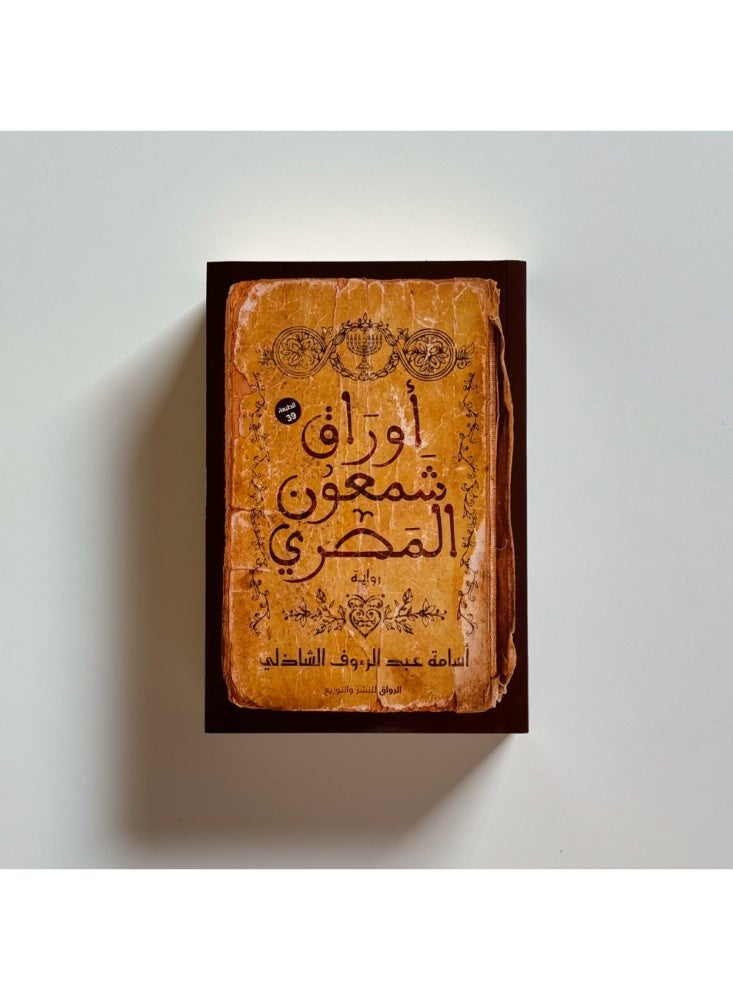 الطبعة
39
أَورَاق
شَمعوُن
المَصْري
رواية
أسامة عبد الرءوف الشاذلي
الرواق للنشر والتوزيع